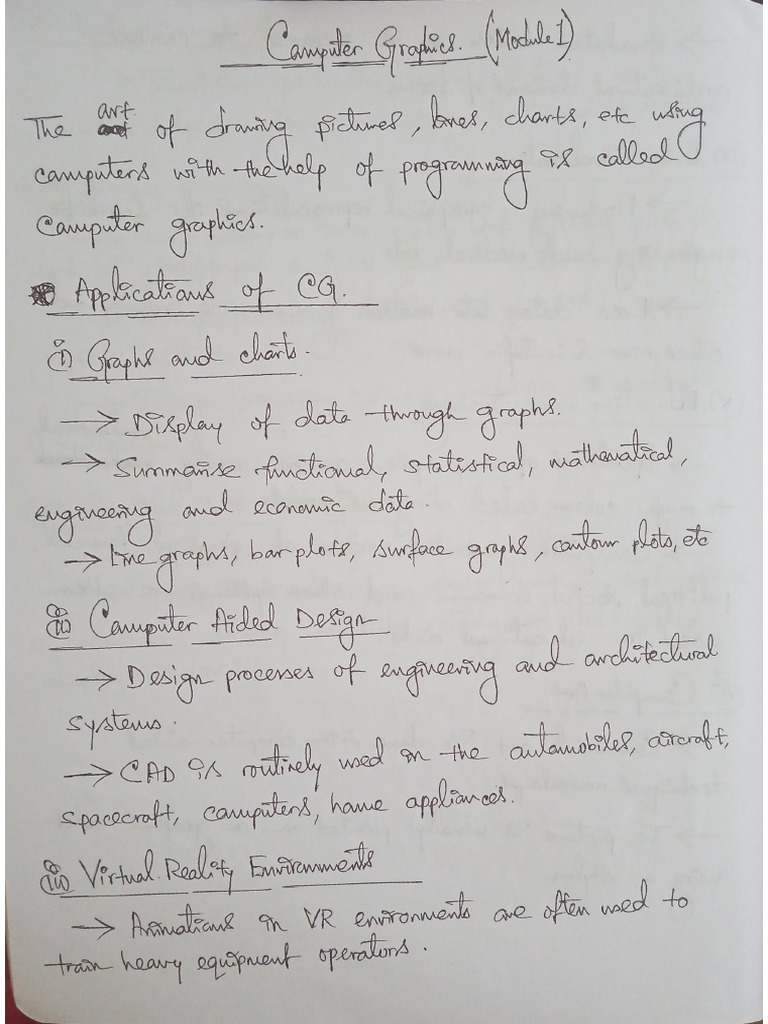 Computer Graphics. (Module 1)
The art of drawing pictures, lines, charts, etc using
computers with the help of programming is called
Computer graphics.
Applications of CG.
(i) Graphs and charts.
→ Display of data through graphs.
→ Summarise functional, statistical, mathematical,
engineering and economic data.
→ Line graphs, bar plots, surface graphs, contour plots, etc
(ii) Computer Aided Design
→ Design processes of engineering and architectural
systems.
→ CAD is routinely used in the automobiles, aircraft,
spacecraft, computers, home appliances.
(iii) Virtual Reality Environments
→ Animations in VR environments are often used to
train heavy equipment operators.